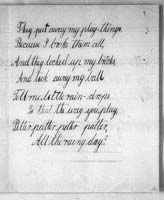 They put away my play-things,
Because I broke them all,
And they locked up my bricks,
And took away my ball.
Tell me little rain-drops
Is that the way you play,
Pitter patter, pitter patter,
All the rainy day?